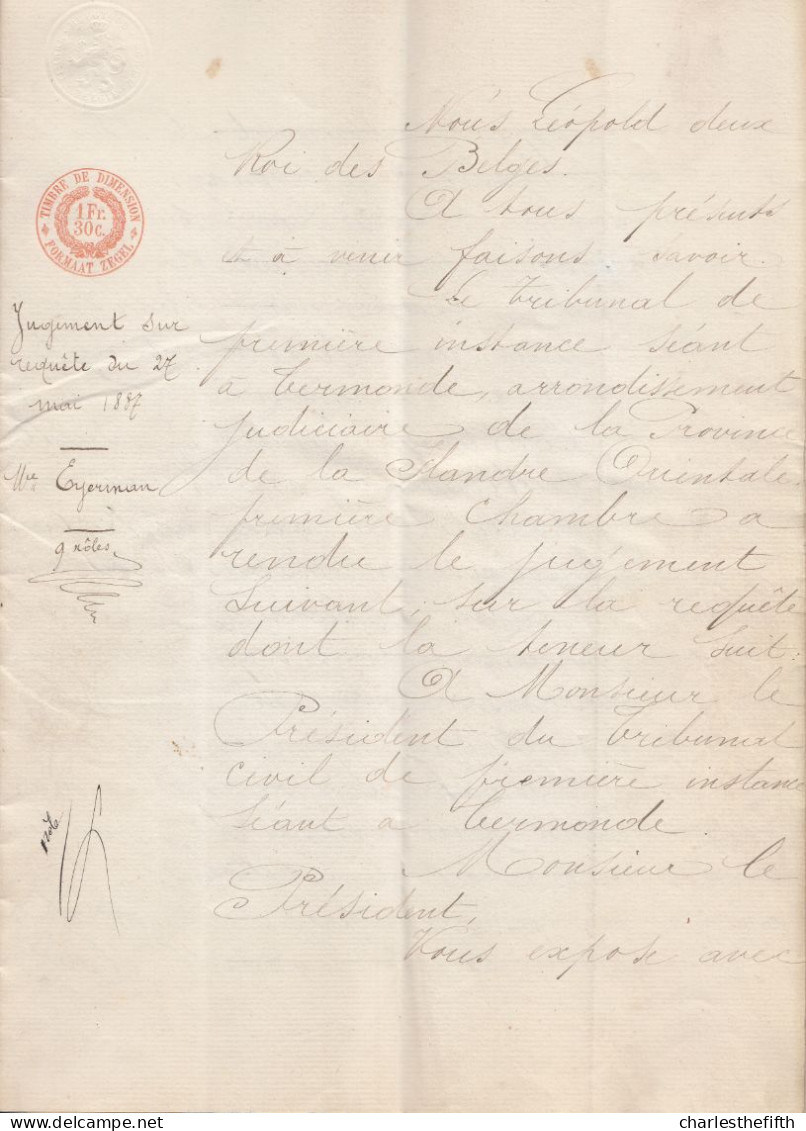 TIMBRE DE DIMENSION
1 Fr.
30 c.
FORMAAT ZEGEL
Jugement sur
requête du 27
mai 1887
Me Eyerman
9 rôles
Nous Léopold deux
Roi des Belges.
A tous présents
et à venir faisons savoir.
Le Tribunal de
première instance séant
à Termonde, arrondissement
judiciaire de la Province
de la Flandre Orientale,
première chambre a
rendu le jugement
suivant, sur la requête
dont la teneur suit:
A Monsieur le
Président du Tribunal
civil de première instance
séant a Termonde.
Monsieur le
Président,
Vous expose avec
charlesthefifth